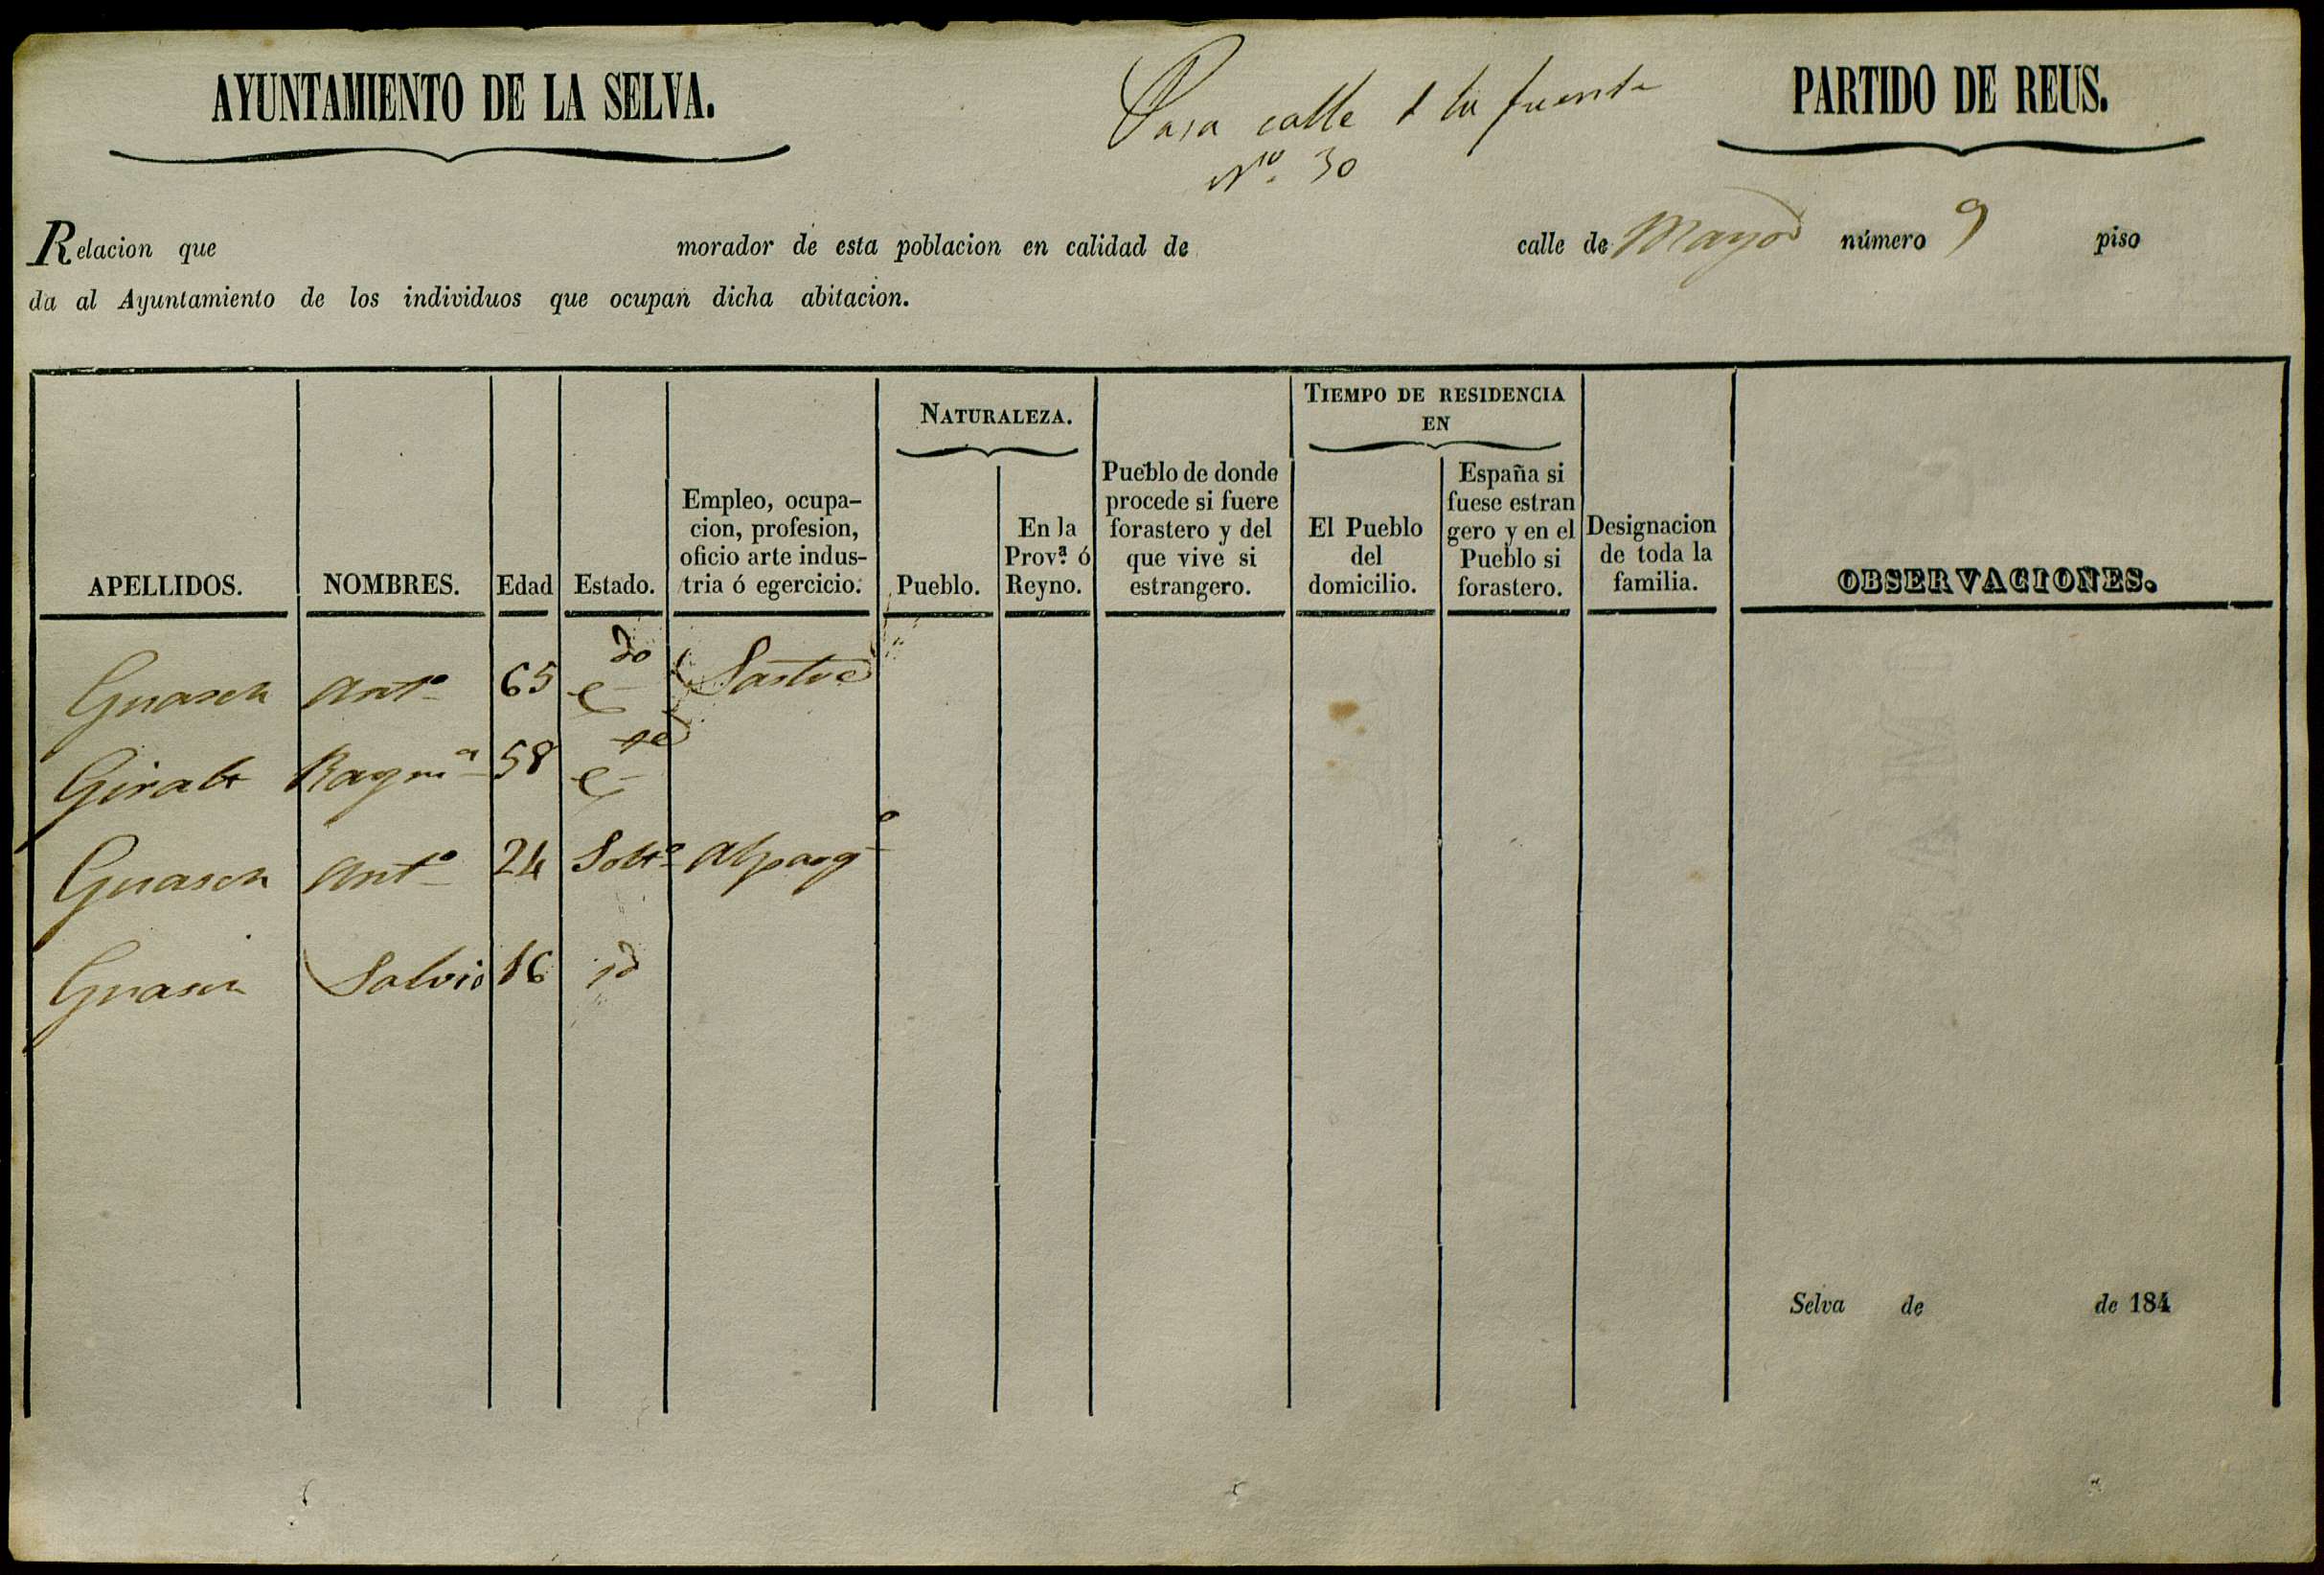 AYUNTAMIENTO DE LA SELVA.
Pasa calle d la fuente
Nº 30
PARTIDO DE REUS.
Relacion que morador de esta poblacion en calidad de calle de Mayor número 9 piso
da al Ayuntamiento de los individuos que ocupan dicha abitacion.
APELLIDOS.
NOMBRES.
Edad
Estado.
Empleo, ocupa-
cion, profesion,
oficio arte indus-
tria ó egercicio.
NATURALEZA.
Pueblo.
En la
Prov.ª ó
Reyno.
Pueblo de donde
procede si fuere
forastero y del
que vive si
estrangero.
TIEMPO DE RESIDENCIA
EN
El Pueblo
del
domicilio.
España si
fuese estran
gero y en el
Pueblo si
forastero.
Designacion
de toda la
familia.
OBSERVACIONES.
Guasch Antº 65 Sastre
Giralt Raymª 58
Guasch Antº 24 Soltº Alpargº
Guasch Salvio 16 id
Selva de de 184